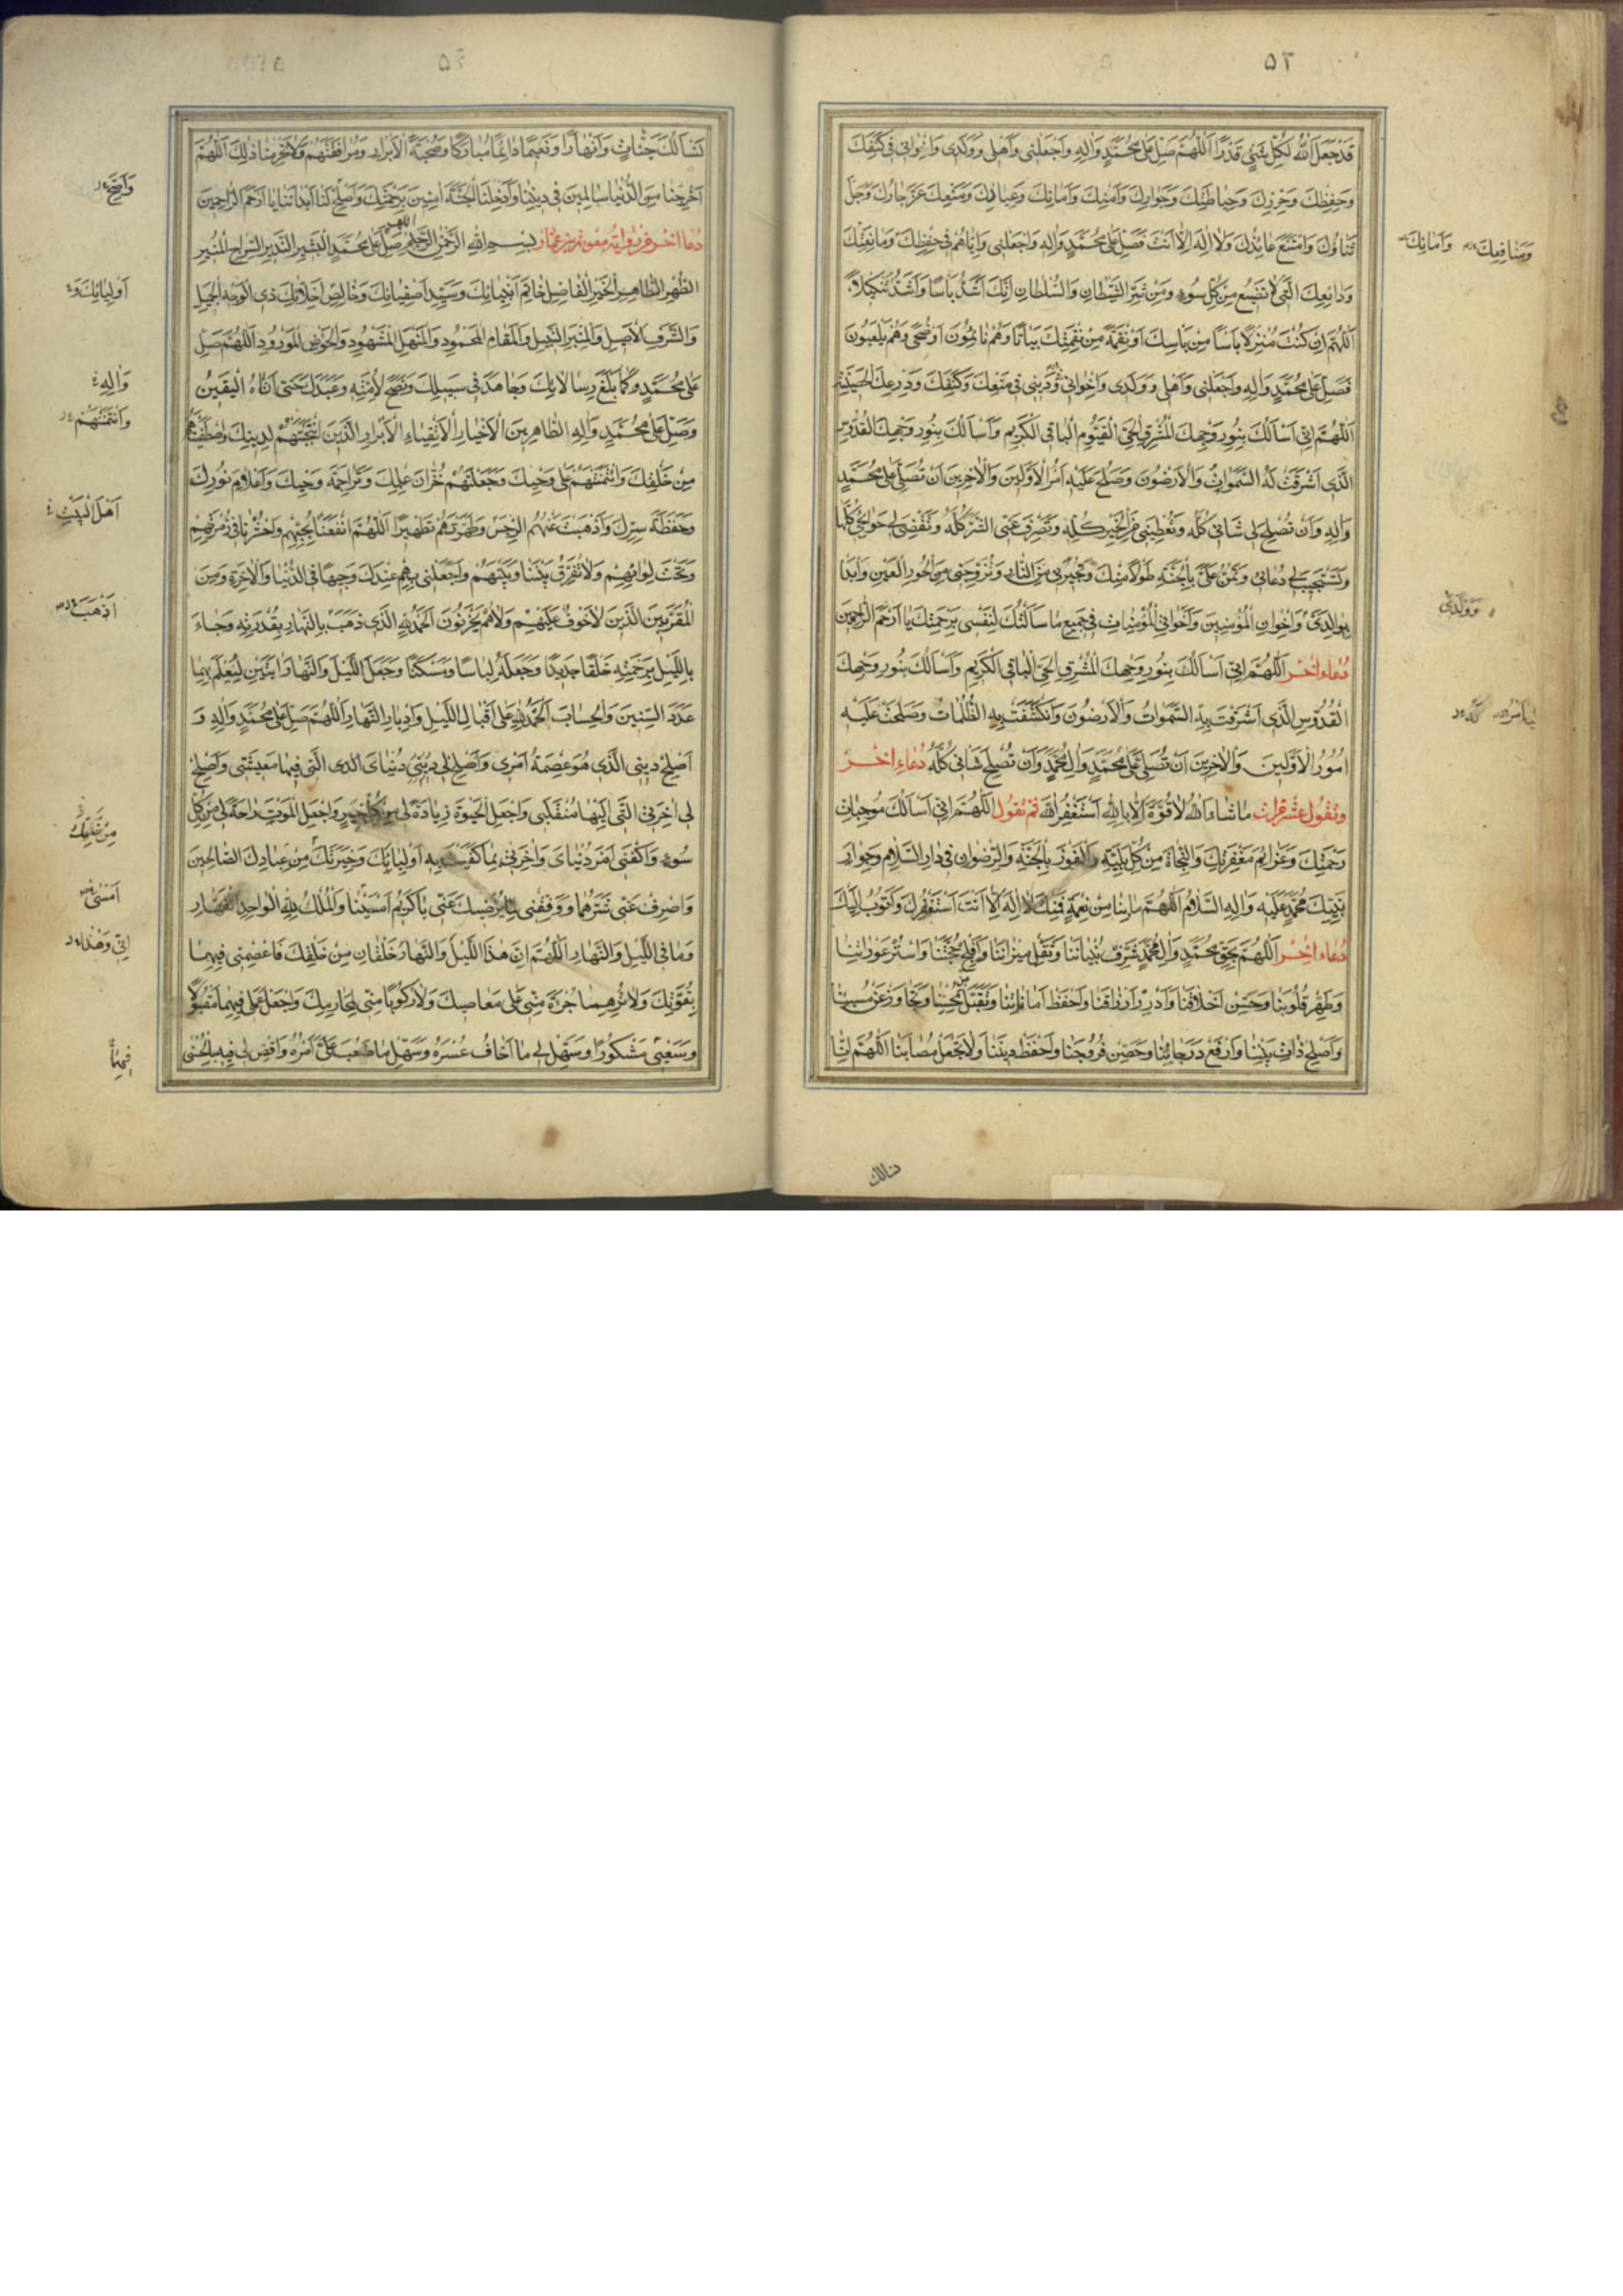 ٥٣
قَدْ جَعَلَ اللهُ لِكُلِّ شَيْءٍ قَدْرًا اَللّٰهُمَّ صَلِّ عَلٰى مُحَمَّدٍ وَاٰلِهِ وَاجْعَلْنِى وَاَهْلِى وَوَلَدِى وَاِخْوَانِى فِى كَنَفِكَ
وَحِفْظِكَ وَحِرْزِكَ وَحِيَاطَتِكَ وَجِوَارِكَ وَاَمْنِكَ وَاَمَانِكَ وَعِيَاذِكَ وَمَنْعِكَ عَزَّ جَارُكَ وَجَلَّ
ثَنَاؤُكَ وَامْتَنَعَ عَائِذُكَ وَلَا اِلٰهَ اِلَّا اَنْتَ فَصَلِّ عَلٰى مُحَمَّدٍ وَاٰلِهِ وَاجْعَلْنِى وَاِيَّاهُمْ فِى حِفْظِكَ وَمَانِعَتِكَ
وَمَنَافِعِكَ وَاَمَانِكَ
وَدَائِعِكَ الَّتِى لَا تَضِيعُ مِنْ كُلِّ سُوءٍ وَمِنْ شَرِّ الشَّيْطَانِ وَالسُّلْطَانِ اِنَّكَ اَشَدُّ بَاْسًا وَاَشَدُّ تَنْكِيلًا
اَللّٰهُمَّ اِنْ كُنْتَ مُنْزِلًا بَاْسًا مِنْ بَاْسِكَ اَوْ نِقْمَةً مِنْ نِقْمَتِكَ بَيَاتًا وَهُمْ نَائِمُونَ اَوْ ضُحًى وَهُمْ يَلْعَبُونَ
فَصَلِّ عَلٰى مُحَمَّدٍ وَاٰلِهِ وَاجْعَلْنِى وَاَهْلِى وَوَلَدِى وَاِخْوَانِى فِى دِينِى فِى مَنْعِكَ وَكَنَفِكَ وَدِرْعِكَ الْحَصِينَةِ
اَللّٰهُمَّ اِنِّى اَسْاَلُكَ بِنُورِ وَجْهِكَ الْمُشْرِقِ الْحَىِّ الْقَيُّومِ الْبَاقِى الْكَرِيمِ وَاَسْاَلُكَ بِنُورِ وَجْهِكَ الْقُدُّوسِ
الَّذِى اَشْرَقَتْ لَهُ السَّمٰوَاتُ وَالْاَرَضُونَ وَصَلُحَ عَلَيْهِ اَمْرُ الْاَوَّلِينَ وَالْاٰخِرِينَ اَنْ تُصَلِّىَ عَلٰى مُحَمَّدٍ
وَاٰلِهِ وَاَنْ تُصْلِحَ لِى شَانِى كُلَّهُ وَتُعْطِيَنِى مِنَ الْخَيْرِ كُلِّهِ وَتَصْرِفَ عَنِّى الشَّرَّ كُلَّهُ وَتَقْضِىَ لِى حَوَائِجِى كُلَّهَا
وَتَسْتَجِيبَ لِى دُعَائِى وَتَمُنَّ عَلَىَّ بِالْجَنَّةِ طَوْلًا مِنْكَ وَتُجِيرَنِى مِنَ النَّارِ وَتُزَوِّجَنِى مِنَ الْحُورِ الْعِينِ وَابْدَا
وَوَلَدِى
بِوَالِدَىَّ وَاِخْوَانِى الْمُؤْمِنِينَ وَاَخَوَاتِى الْمُؤْمِنَاتِ فِى جَمِيعِ مَا سَاَلْتُكَ لِنَفْسِى بِرَحْمَتِكَ يَا اَرْحَمَ الرَّاحِمِينَ
دُعَاء اٰخَر اَللّٰهُمَّ اِنِّى اَسْاَلُكَ بِنُورِ وَجْهِكَ الْمُشْرِقِ الْحَىِّ الْبَاقِى الْكَرِيمِ وَاَسْاَلُكَ بِنُورِ وَجْهِكَ
الْقُدُّوسِ الَّذِى اَشْرَقَتْ بِهِ السَّمٰوَاتُ وَالْاَرَضُونَ وَانْكَشَفَتْ بِهِ الظُّلُمَاتُ وَصَلَحَتْ عَلَيْهِ
اُمُورُ الْاَوَّلِينَ وَالْاٰخِرِينَ اَنْ تُصَلِّىَ عَلٰى مُحَمَّدٍ وَاٰلِ مُحَمَّدٍ وَاَنْ تُصْلِحَ شَانِى كُلَّهُ دُعَاء اٰخَر
وَتَقُولُ عَشْرَ مَرَّاتٍ مَا شَاءَ اللهُ لَا قُوَّةَ اِلَّا بِاللهِ اَسْتَغْفِرُ اللهَ ثُمَّ تَقُولُ اَللّٰهُمَّ اِنِّى اَسْاَلُكَ مُوجِبَاتِ
رَحْمَتِكَ وَعَزَائِمَ مَغْفِرَتِكَ وَالنَّجَاةَ مِنْ كُلِّ بَلِيَّةٍ وَالْفَوْزَ بِالْجَنَّةِ وَالرِّضْوَانِ فِى دَارِ السَّلَامِ وَجِوَارِ
نَبِيِّكَ مُحَمَّدٍ عَلَيْهِ وَاٰلِهِ السَّلَامُ اَللّٰهُمَّ مَا بِنَا مِنْ نِعْمَةٍ فَمِنْكَ لَا اِلٰهَ اِلَّا اَنْتَ اَسْتَغْفِرُكَ وَاَتُوبُ اِلَيْكَ
دُعَاء اٰخَر اَللّٰهُمَّ بِحَقِّ مُحَمَّدٍ وَاٰلِ مُحَمَّدٍ شَرِّفْ بُنْيَانَنَا وَثَقِّلْ مِيزَانَنَا وَاَفْلِجْ حُجَّتَنَا وَاسْتُرْ عَوْرَاتِنَا
وَطَهِّرْ قُلُوبَنَا وَحَسِّنْ اَخْلَاقَنَا وَاَدِرَّ اَرْزَاقَنَا وَاحْفَظْ اَمَانَاتِنَا وَتَقَبَّلْ مِنْ مُحْسِنِنَا وَتَجَاوَزْ عَنْ مُسِيئِنَا
وَاَصْلِحْ ذَاتَ بَيْنِنَا وَارْفَعْ دَرَجَاتِنَا وَحَصِّنْ فُرُوجَنَا وَاحْفَظْ دِينَنَا وَلَا تَجْعَلْ مُصَابَنَا اَللّٰهُمَّ اِنَّا
نسالك
٥٤
نَسْاَلُكَ جَنَّاتٍ وَاَنْهَارًا وَنَعِيمًا دَائِمًا مُبَارَكًا وَصُحْبَةَ الْاَبْرَارِ وَمُرَافَقَتَهُمْ وَلَا تَحْرِمْنَا ذٰلِكَ اَللّٰهُمَّ
اَخْرِجْنَا مِنَ الدُّنْيَا سَالِمِينَ فِى دِينِنَا وَاَدْخِلْنَا الْجَنَّةَ اٰمِنِينَ بِرَحْمَتِكَ وَاَصْلِحْ لَنَا اَبْدَانَنَا يَا اَرْحَمَ الرَّاحِمِينَ
دُعَاء اٰخَر مِنْ رِوَايَةِ مُعٰوِيَةَ بْنِ عَمَّار بِسْمِ اللهِ الرَّحْمٰنِ الرَّحِيمِ اللهم صَلِّ عَلٰى مُحَمَّدٍ الْبَشِيرِ النَّذِيرِ السِّرَاجِ الْمُنِيرِ
الطُّهْرِ الطَّاهِرِ الْخَيْرِ الْفَاضِلِ خَاتَمِ اَنْبِيَائِكَ وَسَيِّدِ اَصْفِيَائِكَ وَخَالِصِ اَخِلَّائِكَ ذِى الْوَجْهِ الْجَمِيلِ
اَوْلِيَائِكَ وَ
وَالشَّرَفِ الْاَصِيلِ وَالْمِنْبَرِ النَّبِيلِ وَالْمَقَامِ الْمَحْمُودِ وَالْمَنْهَلِ الْمَشْهُودِ وَالْحَوْضِ الْمَوْرُودِ اَللّٰهُمَّ صَلِّ
عَلٰى مُحَمَّدٍ كَمَا بَلَّغَ رِسَالَاتِكَ وَجَاهَدَ فِى سَبِيلِكَ وَنَصَحَ لِاُمَّتِهِ وَعَبَدَكَ حَتّٰى اَتَاهُ الْيَقِينُ
وَاٰلِهِ
وَصَلِّ عَلٰى مُحَمَّدٍ وَاٰلِهِ الطَّاهِرِينَ الْاَخْيَارِ الْاَتْقِيَاءِ الْاَبْرَارِ الَّذِينَ انْتَجَبْتَهُمْ لِدِينِكَ وَاصْطَفَيْتَهُمْ
وَائْتَمَنْتَهُمْ
مِنْ خَلْقِكَ وَائْتَمَنْتَهُمْ عَلٰى وَحْيِكَ وَجَعَلْتَهُمْ خُزَّانَ عِلْمِكَ وَتَرَاجِمَةَ وَحْيِكَ وَاَعْلَامَ نُورِكَ
وَحَفَظَةَ سِرِّكَ وَاَذْهَبْتَ عَنْهُمُ الرِّجْسَ وَطَهَّرْتَهُمْ تَطْهِيرًا اَللّٰهُمَّ انْفَعْنَا بِحُبِّهِمْ وَاحْشُرْنَا فِى زُمْرَتِهِمْ
اَهْلَ الْبَيْتِ
وَتَحْتَ لِوَائِهِمْ وَلَا تُفَرِّقْ بَيْنَنَا وَبَيْنَهُمْ وَاجْعَلْنِى بِهِمْ عِنْدَكَ وَجِيهًا فِى الدُّنْيَا وَالْاٰخِرَةِ وَمِنَ
الْمُقَرَّبِينَ الَّذِينَ لَا خَوْفٌ عَلَيْهِمْ وَلَا هُمْ يَحْزَنُونَ اَلْحَمْدُ لِلهِ الَّذِى ذَهَبَ بِالنَّهَارِ بِقُدْرَتِهِ وَجَاءَ
اَذْهَبَ
بِاللَّيْلِ بِرَحْمَتِهِ خَلْقًا جَدِيدًا وَجَعَلَهُ لِبَاسًا وَمَسْكَنًا وَجَعَلَ اللَّيْلَ وَالنَّهَارَ اٰيَتَيْنِ لِيُعْلَمَ بِهِمَا
عَدَدَ السِّنِينَ وَالْحِسَابَ اَلْحَمْدُ لِلهِ عَلٰى اِقْبَالِ اللَّيْلِ وَاِدْبَارِ النَّهَارِ اَللّٰهُمَّ صَلِّ عَلٰى مُحَمَّدٍ وَاٰلِهِ وَ
اَصْلِحْ دِينِى الَّذِى هُوَ عِصْمَةُ اَمْرِى وَاَصْلِحْ لِى دُنْيَاىَ الَّتِى فِيهَا مَعِيشَتِى وَاَصْلِحْ
لِى اٰخِرَتِى الَّتِى اِلَيْهَا مُنْقَلَبِى وَاجْعَلِ الْحَيٰوةَ زِيَادَةً لِى مِنْ كُلِّ خَيْرٍ وَاجْعَلِ الْمَوْتَ رَاحَةً لِى مِنْ كُلِّ
سُوءٍ وَاكْفِنِى اَمْرَ دُنْيَاىَ وَاٰخِرَتِى بِمَا كَفَيْتَ بِهِ اَوْلِيَاءَكَ وَخِيَرَتَكَ مِنْ عِبَادِكَ الصَّالِحِينَ
وَاصْرِفْ عَنِّى شَرَّهُمَا وَوَفِّقْنِى لِمَا يُرْضِيكَ عَنِّى يَا كَرِيمُ اَمْسَيْنَا وَالْمُلْكُ لِلهِ الْوَاحِدِ الْقَهَّارِ
اَمْسٰى
وَمَا فِى اللَّيْلِ وَالنَّهَارِ اَللّٰهُمَّ اِنَّ هٰذَا اللَّيْلَ وَالنَّهَارَ خَلْقَانِ مِنْ خَلْقِكَ فَاعْصِمْنِى فِيهِمَا
اِنِّى وَهٰذَا
بِقُوَّتِكَ وَلَا تُرِهِمَا جُرْاَةً مِنِّى عَلٰى مَعَاصِيكَ وَلَا رُكُوبًا مِنِّى لِمَحَارِمِكَ وَاجْعَلْ عَمَلِى فِيهِمَا مَقْبُولًا
وَسَعْيِى مَشْكُورًا وَسَهِّلْ لِى مَا اَخَافُ عُسْرَهُ وَسَهِّلْ مَا صَعُبَ عَلَىَّ اَمْرُهُ وَاقْضِ لِى فِيهِ بِالْحُسْنٰى